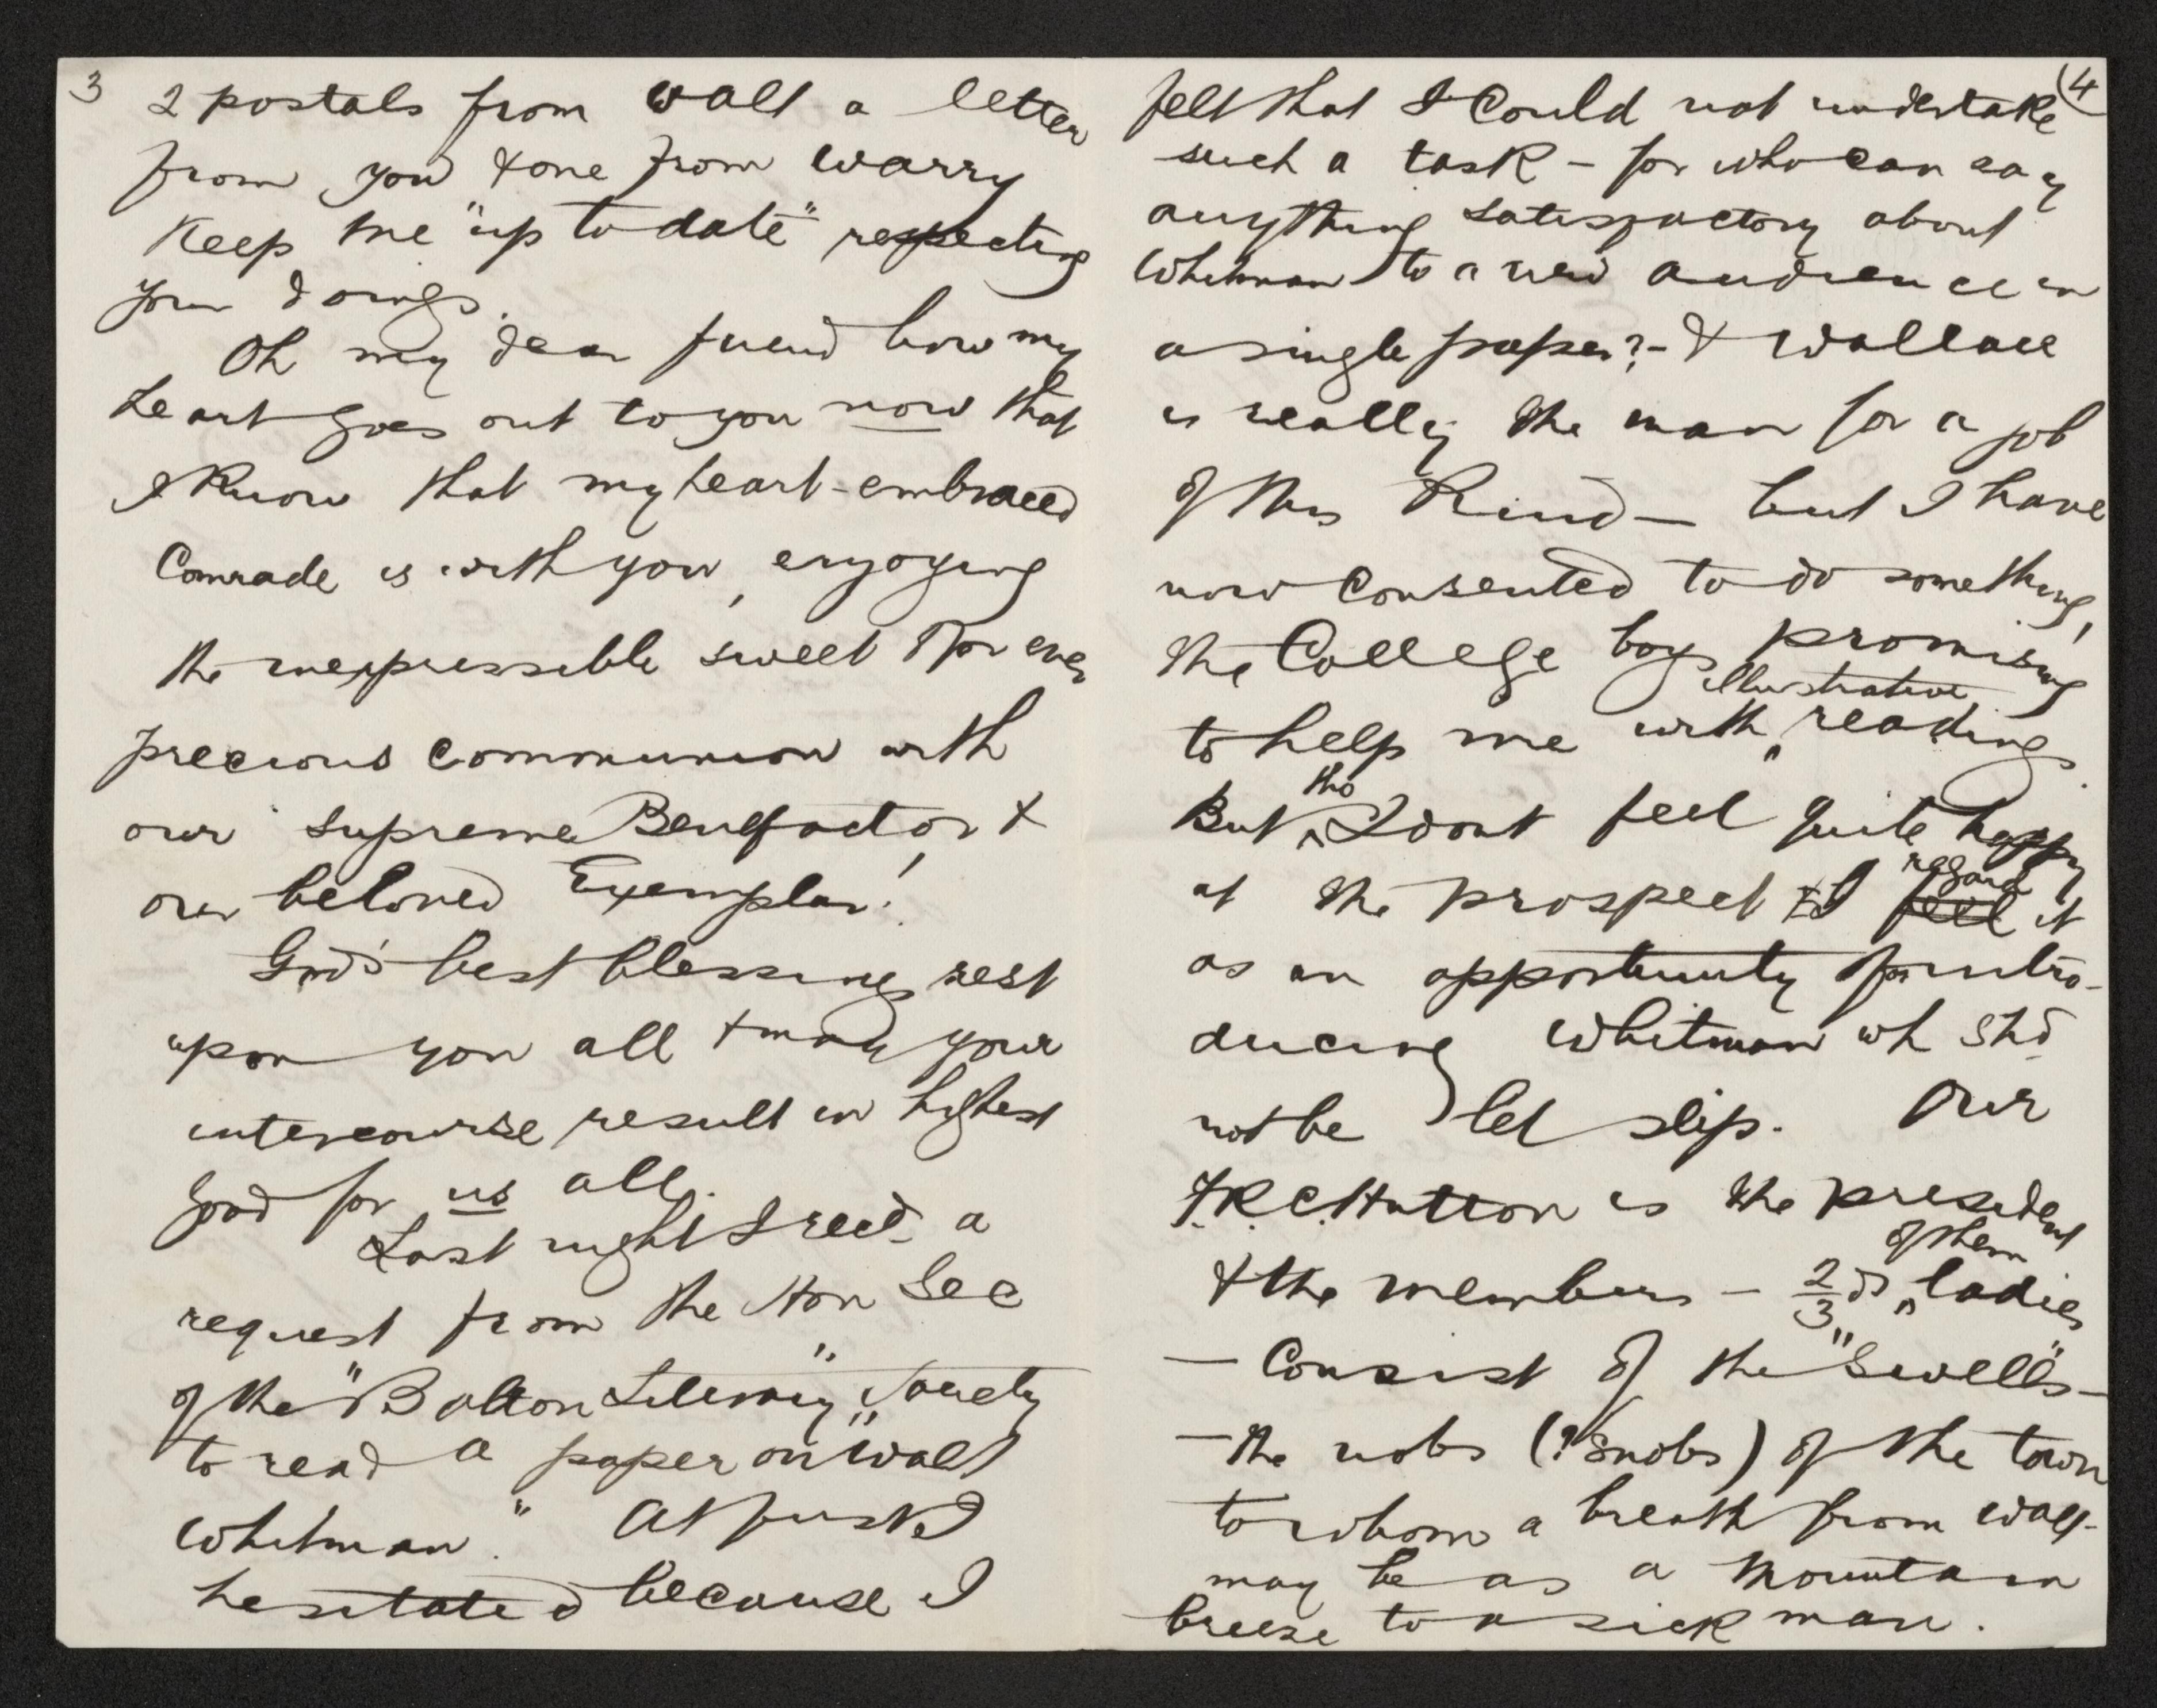 3
2 postals from Walt a letter
from you & one from Warry
Keep me "up to date" respecting
your doings.
Oh my dear friend how my
heart goes out to you now that
I know that my heart-embraced
Comrade is with you, enjoying
the inexpressible sweet & for ever
precious communion with
our supreme Benefactor &
our beloved Exemplar!
God's best blessings rest
upon you all & may your
intercourse result in highest
good for us all.
Last night I recd a
request from the Hon Sec
of the "Bolton Literary Society"
to read a paper on "Walt
Whitman." At first I
hesitated because I
(4
felt that I could not undertake
such a task — for who can say
anything satisfactory about
Whitman to a new audience in
a single paper? — & Wallace
is really the man for a job
of this kind — but I have
now consented to do something,
the College boys promising
to help me with illustrative readings.
But tho I dont feel quite happy
at the prospect & I feel regard it
as an opportunity for intro-
ducing Whitman wh shd
not be let slip. Our
F.R.C. Hutton is the president
& the members — 2/3ds of them ladies
— Consist of the "Swells" —
— the nobs (? snobs) of the town
to whom a breath from Walt
may be as a mountain
breeze to a sick man.